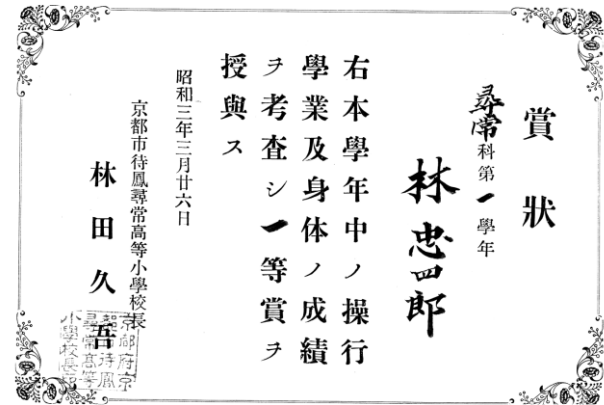 賞狀
尋常科第一學年
林忠四郎
右本學年中ノ操行
學業及身体ノ成績
ヲ考査シ一等賞ヲ
授與ス
昭和三年三月廿六日
京都市待鳳尋常高等小學校長
林田久吾